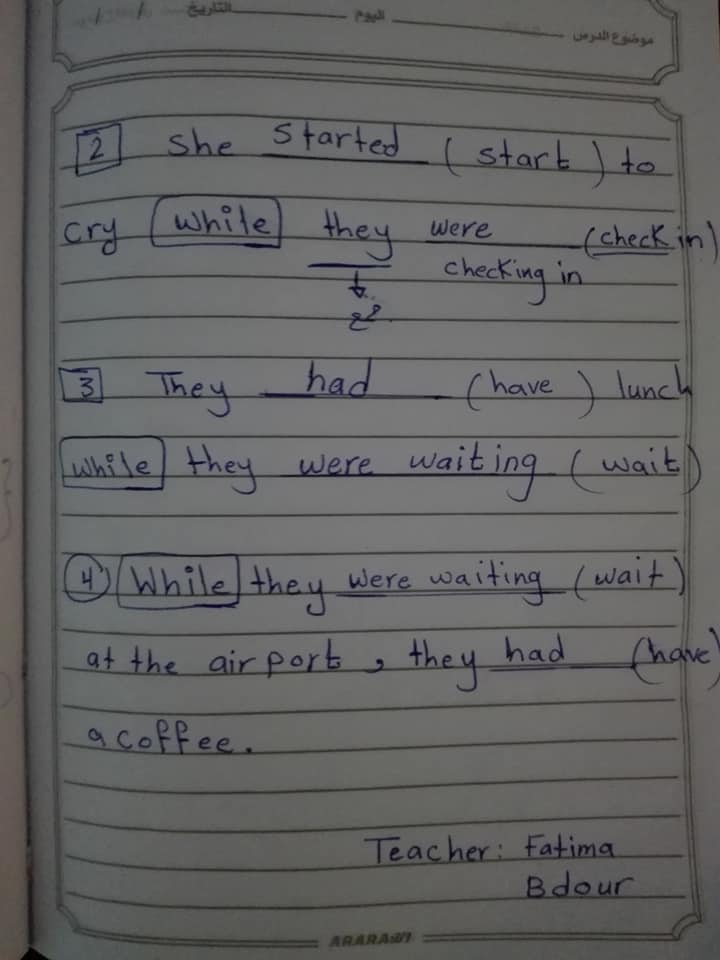 التاريخ / /
اليوم
موضوع الدرس
2 She Started (start) to
cry while they were (check in)
checking in
جمع
3 They had (have) lunch
while they were waiting (wait)
4 While they were waiting (wait)
at the airport, they had (have)
a coffee.
Teacher: Fatima
Bdour